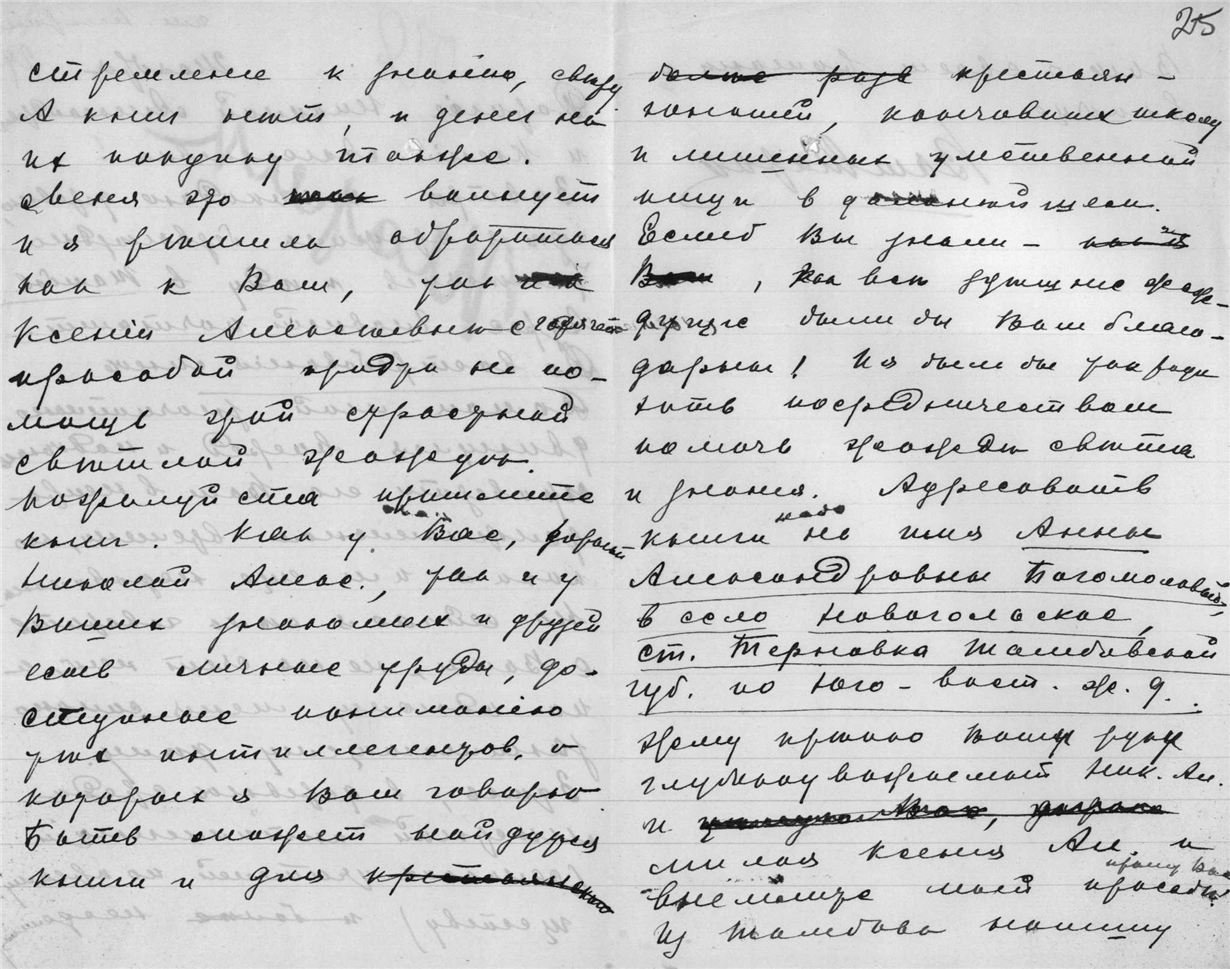 25
стремленiе к знанiю, свету
А книг нѣт, и денег на
их покупку тоже.
Меня это волнует
и я рѣшила обратиться
как к Вам, так
Ксенiи Алексѣевнѣ с горячей
просьбой придти на по-
мощь этой страстной
свѣтлой жаждѣ.
Пожалуйста пришлите
книг. Как у Вас, дорогой
Николай Алекс., так и у
Ваших знакомых и друзей
есть личные труды, до-
ступные пониманiю
тѣх интиллегентов, о
которых я Вам говорю.
Быть может найдутся
книги и для крестьянских
крестьян-
юношей, кончивших школу
и лишенных умственной
пищи в
Еслиб Вы знали –
, как всѣ ждущiе
были бы Вам благо-
дарны! И я была бы так рада
хоть посредничеством
помочь жаждѣ свѣта
и знанiя. Адресовать
книги надо на имя Анны
Александровны Богомоловой,
в село Новогольское,
ст. Терновка Тамбовской
губ. по Юго-вост. ж. д.
Жму крѣпко Вашу руку
глубокоуважаемый Ник. Ал.
и
милая Ксенiя Ал. и
прошу Вас
внемлите моей просьбѣ.
Из Тамбова напишу